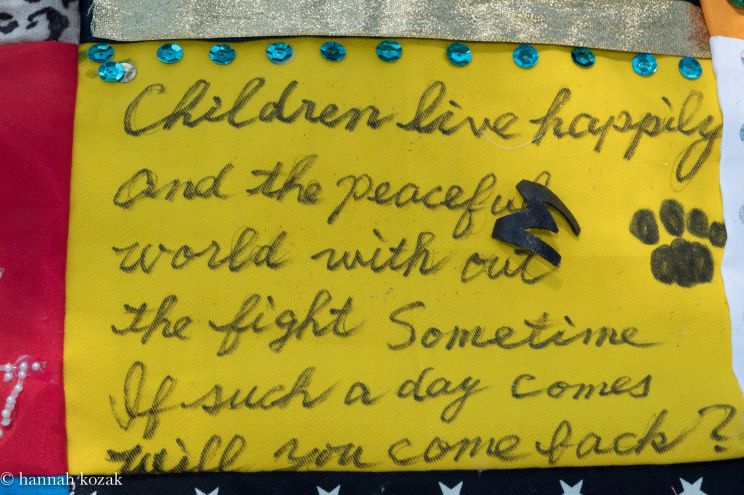 Children live happily
and the peaceful
world with out
the fight Sometime
If such a day comes
will you come back?
© hannah kozak